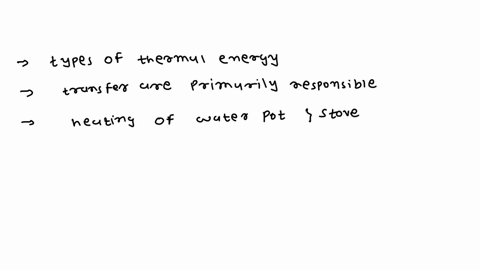 → types of thermal energy
→ transfer are primarily responsible
→ heating of water pot & stove